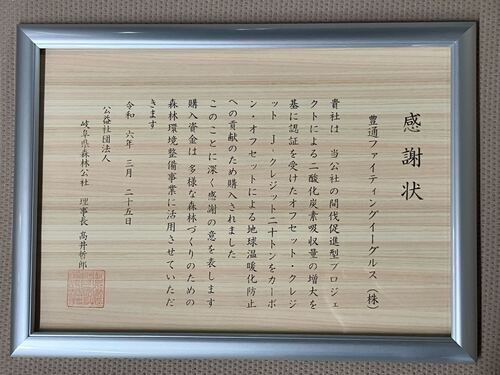 感謝状
豊通ファイティングイーグルス(株)
貴社は 当公社の間伐促進型プロジェ
クトによる二酸化炭素吸収量の増大を
基に認証を受けたオフセット・クレジ
ット J-クレジット二十トンをカーボ
ン・オフセットによる地球温暖化防止
への貢献のため購入されました
このことに深く感謝の意を表します
購入資金は 多様な森林づくりのための
森林環境整備事業に活用させていただ
きます
令和 六年 三月 二十五日
公益社団法人
岐阜県森林公社 理事長 高井哲郎